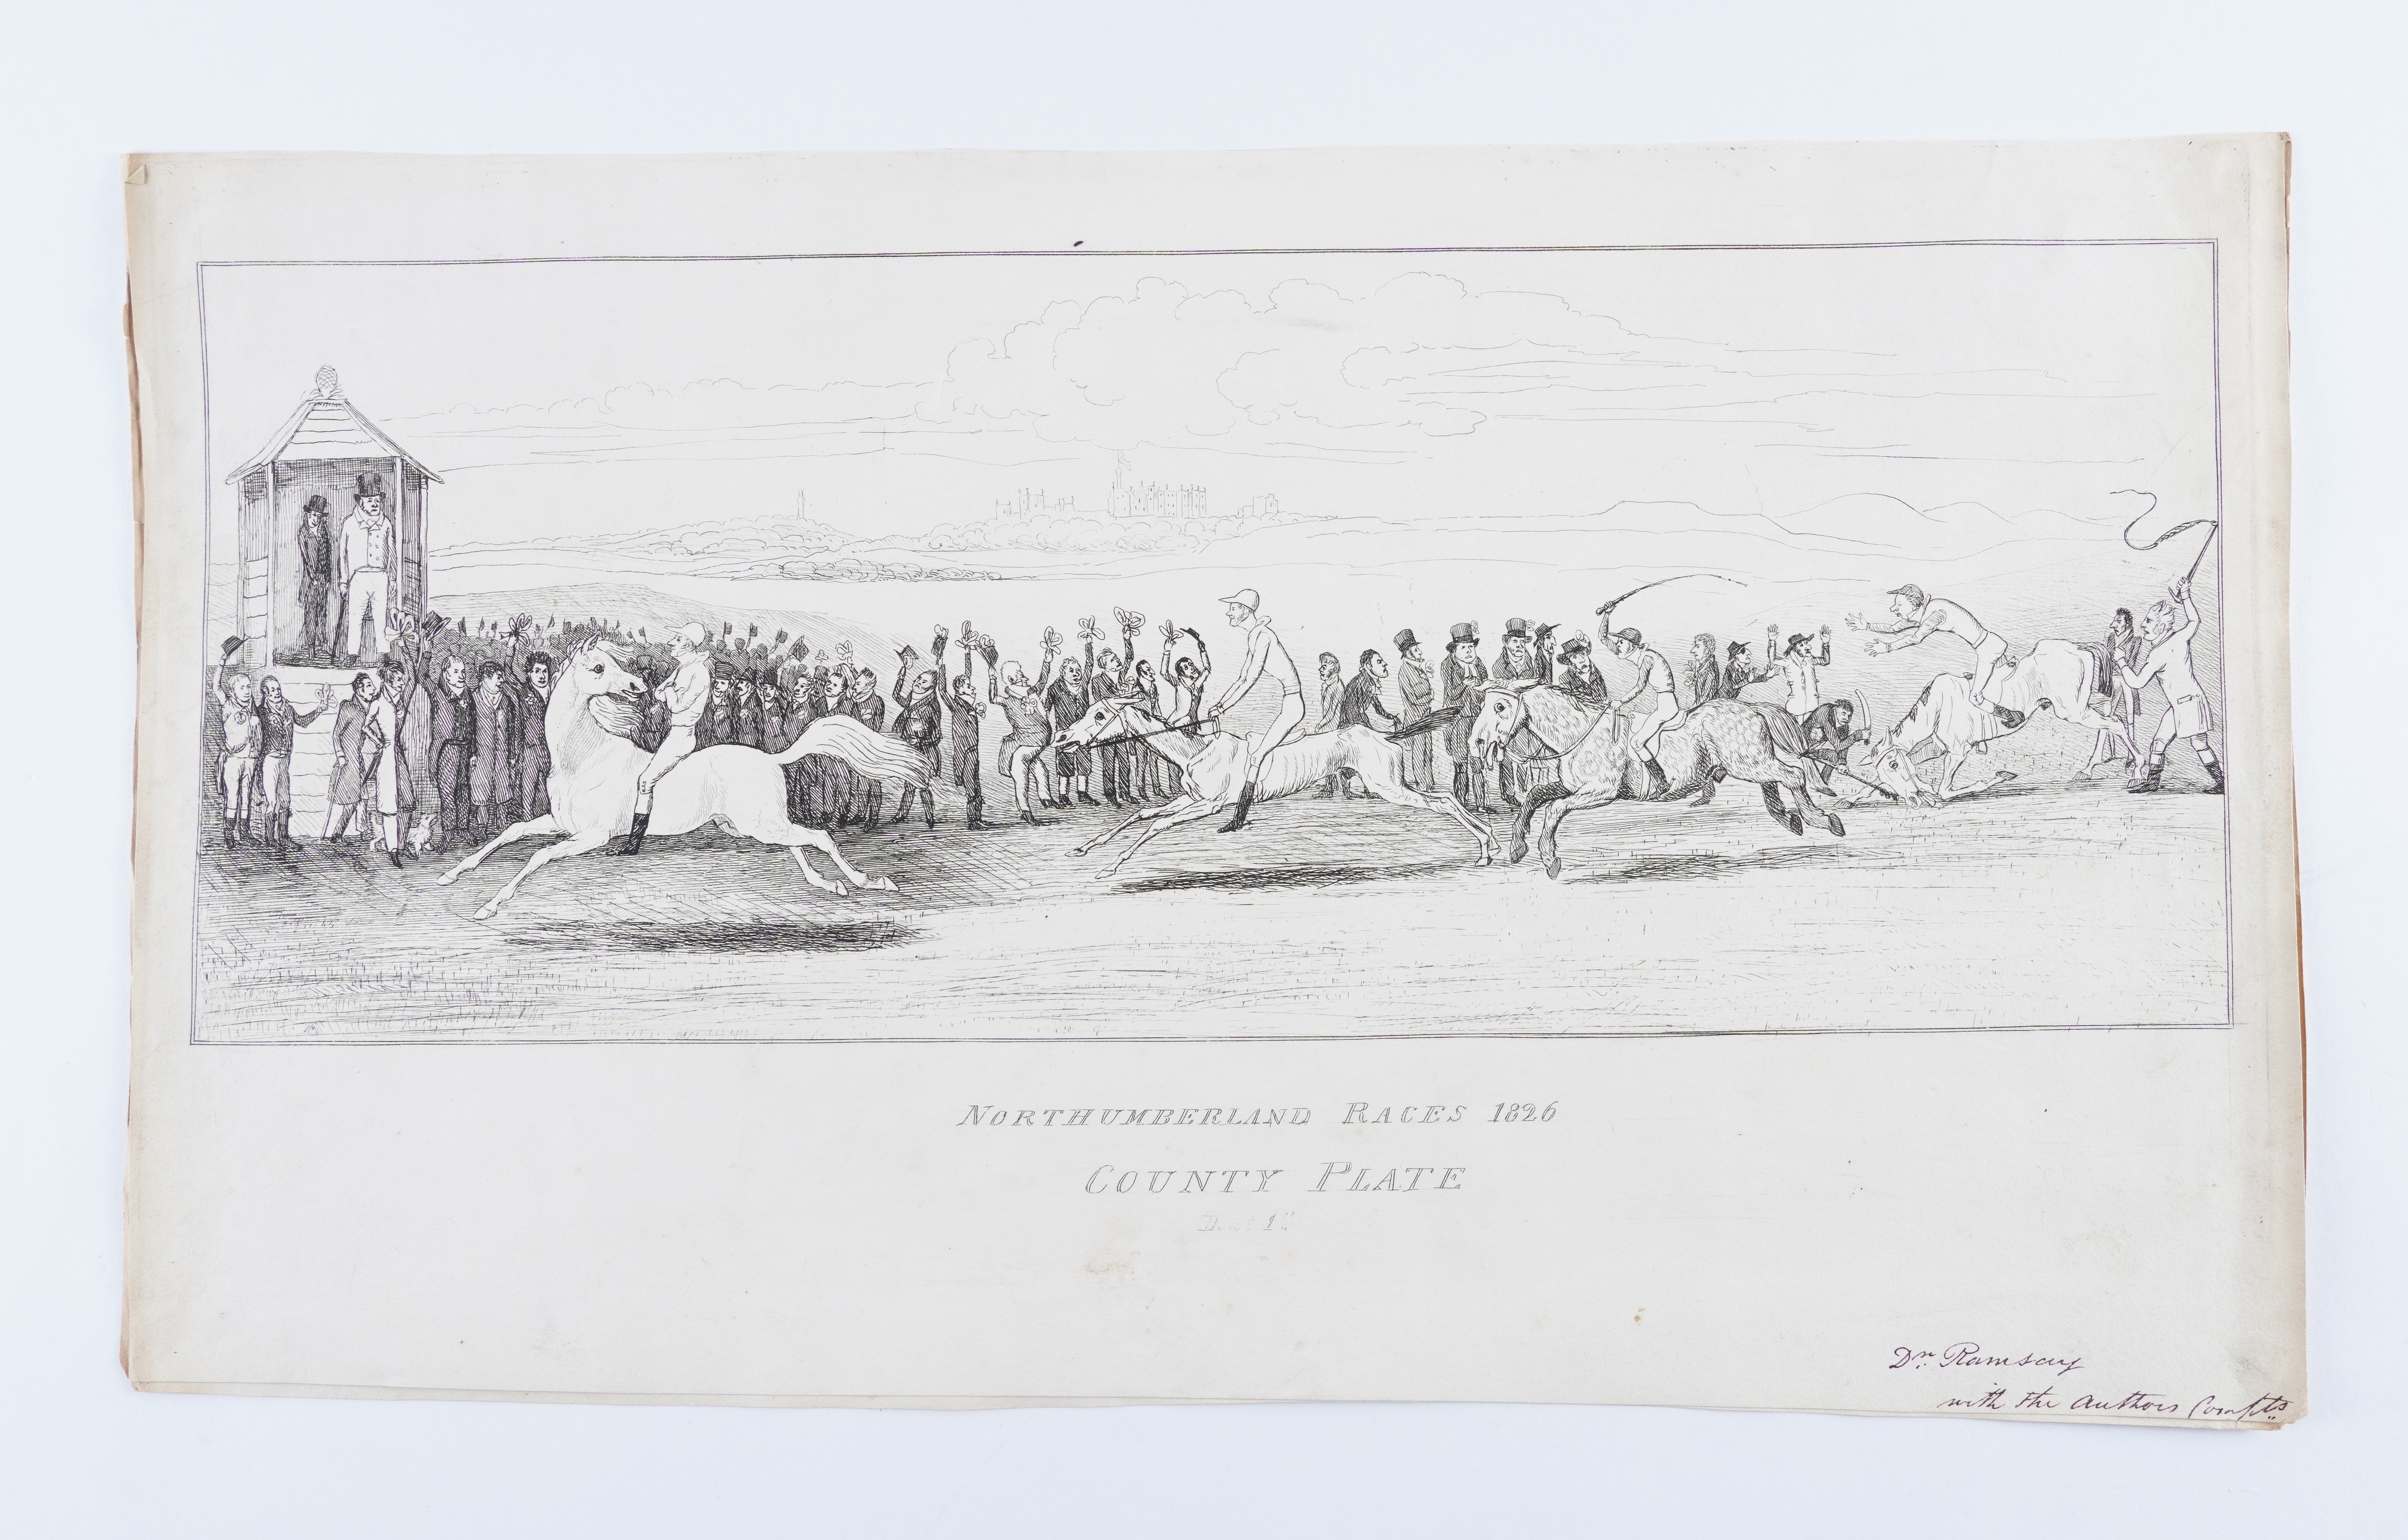 NORTHUMBERLAND RACES 1826
COUNTY PLATE
Dr. Ramsay
with the Authors Compts